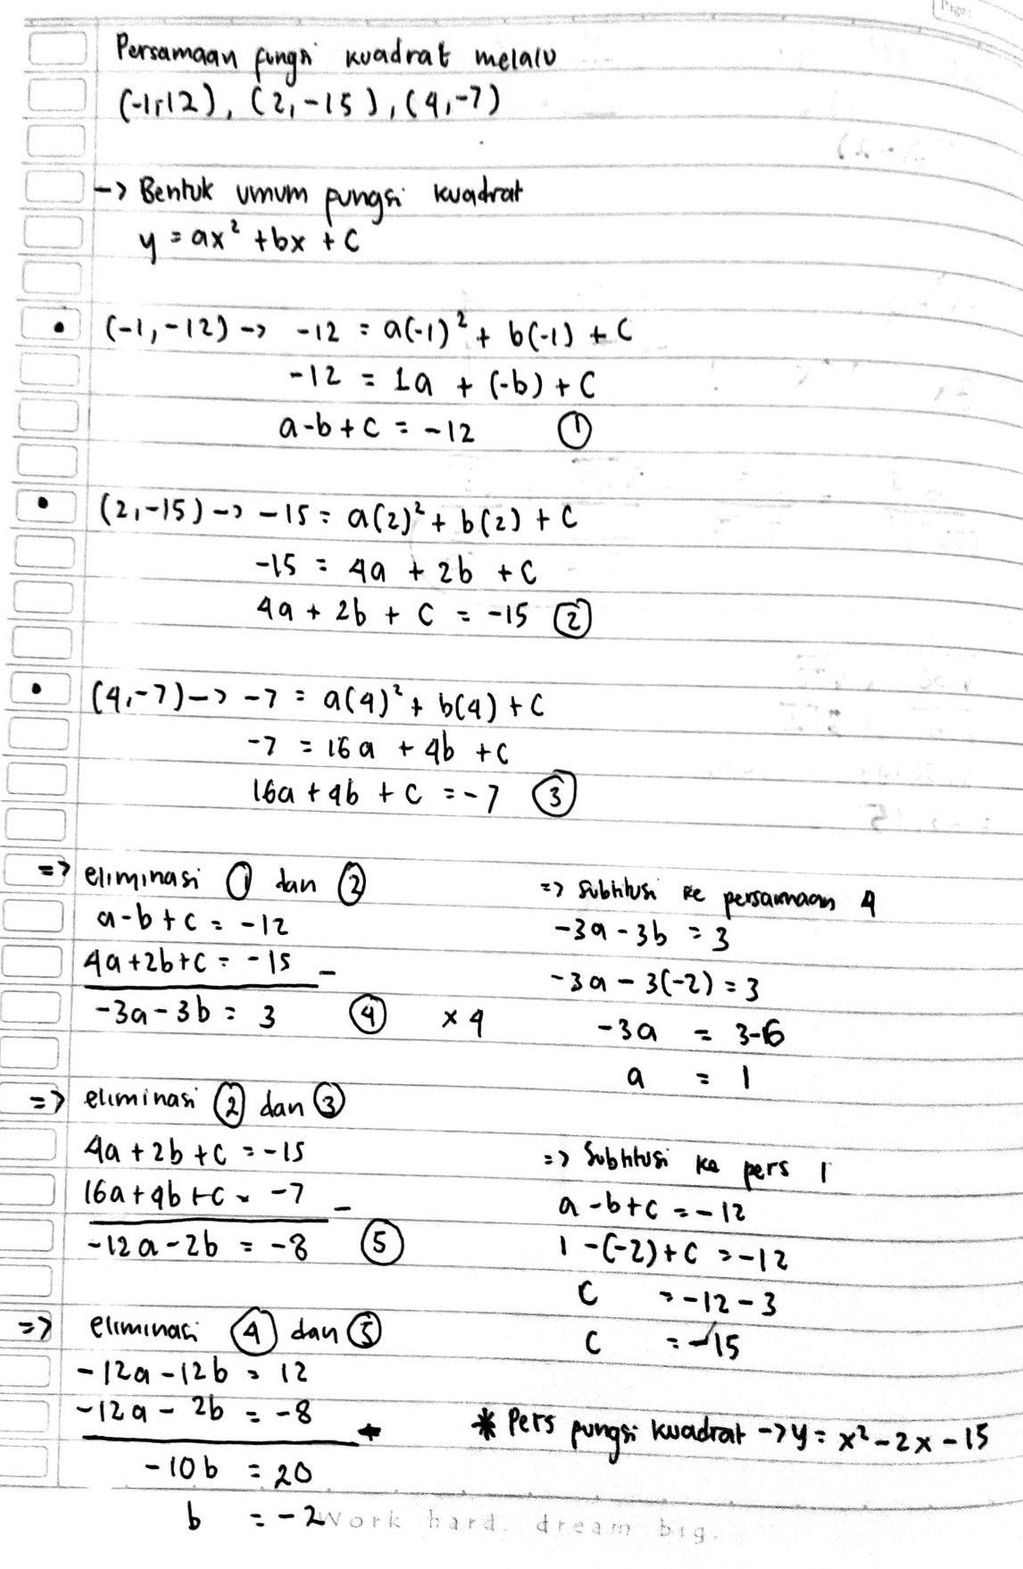 Persamaan fungsi kuadrat melalu
(-1,12), (2,-15), (4,-7)
-> Bentuk umum fungsi kuadrat
y = ax² + bx + C
• (-1,-12) -> -12 = a(-1)² + b(-1) + C
-12 = 1a + (-b) + C
a-b+c = -12 ①
• (2,-15) -> -15 = a(2)² + b(2) + C
-15 = 4a + 2b + C
4a + 2b + C = -15 ②
• (4,-7) -> -7 = a(4)² + b(4) + C
-7 = 16a + 4b + C
16a + 4b + C = -7 ③
=> eliminasi ① dan ②
a-b+c = -12
4a+2b+c = -15 -
-3a-3b = 3 ④ x4
=> eliminasi ② dan ③
4a+2b+c = -15
16a+4b+c = -7 -
-12a-2b = -8 ⑤
=> eliminasi ④ dan ⑤
-12a-12b = 12
-12a-2b = -8 +
-10b = 20
b = -2
=> Subtitusi ke persamaan 4
-3a-3b = 3
-3a-3(-2) = 3
-3a = 3-6
a = 1
=> Subtitusi ke pers 1
a-b+c = -12
1-(-2)+c = -12
C = -12-3
C = -15
* Pers fungsi kuadrat -> y = x²-2x-15
Work hard. dream big.